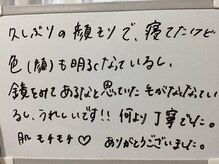 久しぶりの顔そりで、寝てたけど
色(顔)も明るくなっているし、
鏡をみてあるなと思っていたそがなくなってい
るし、うれしいです!! 何より丁寧でした。
肌モチモチ♡ ありがとうございました。